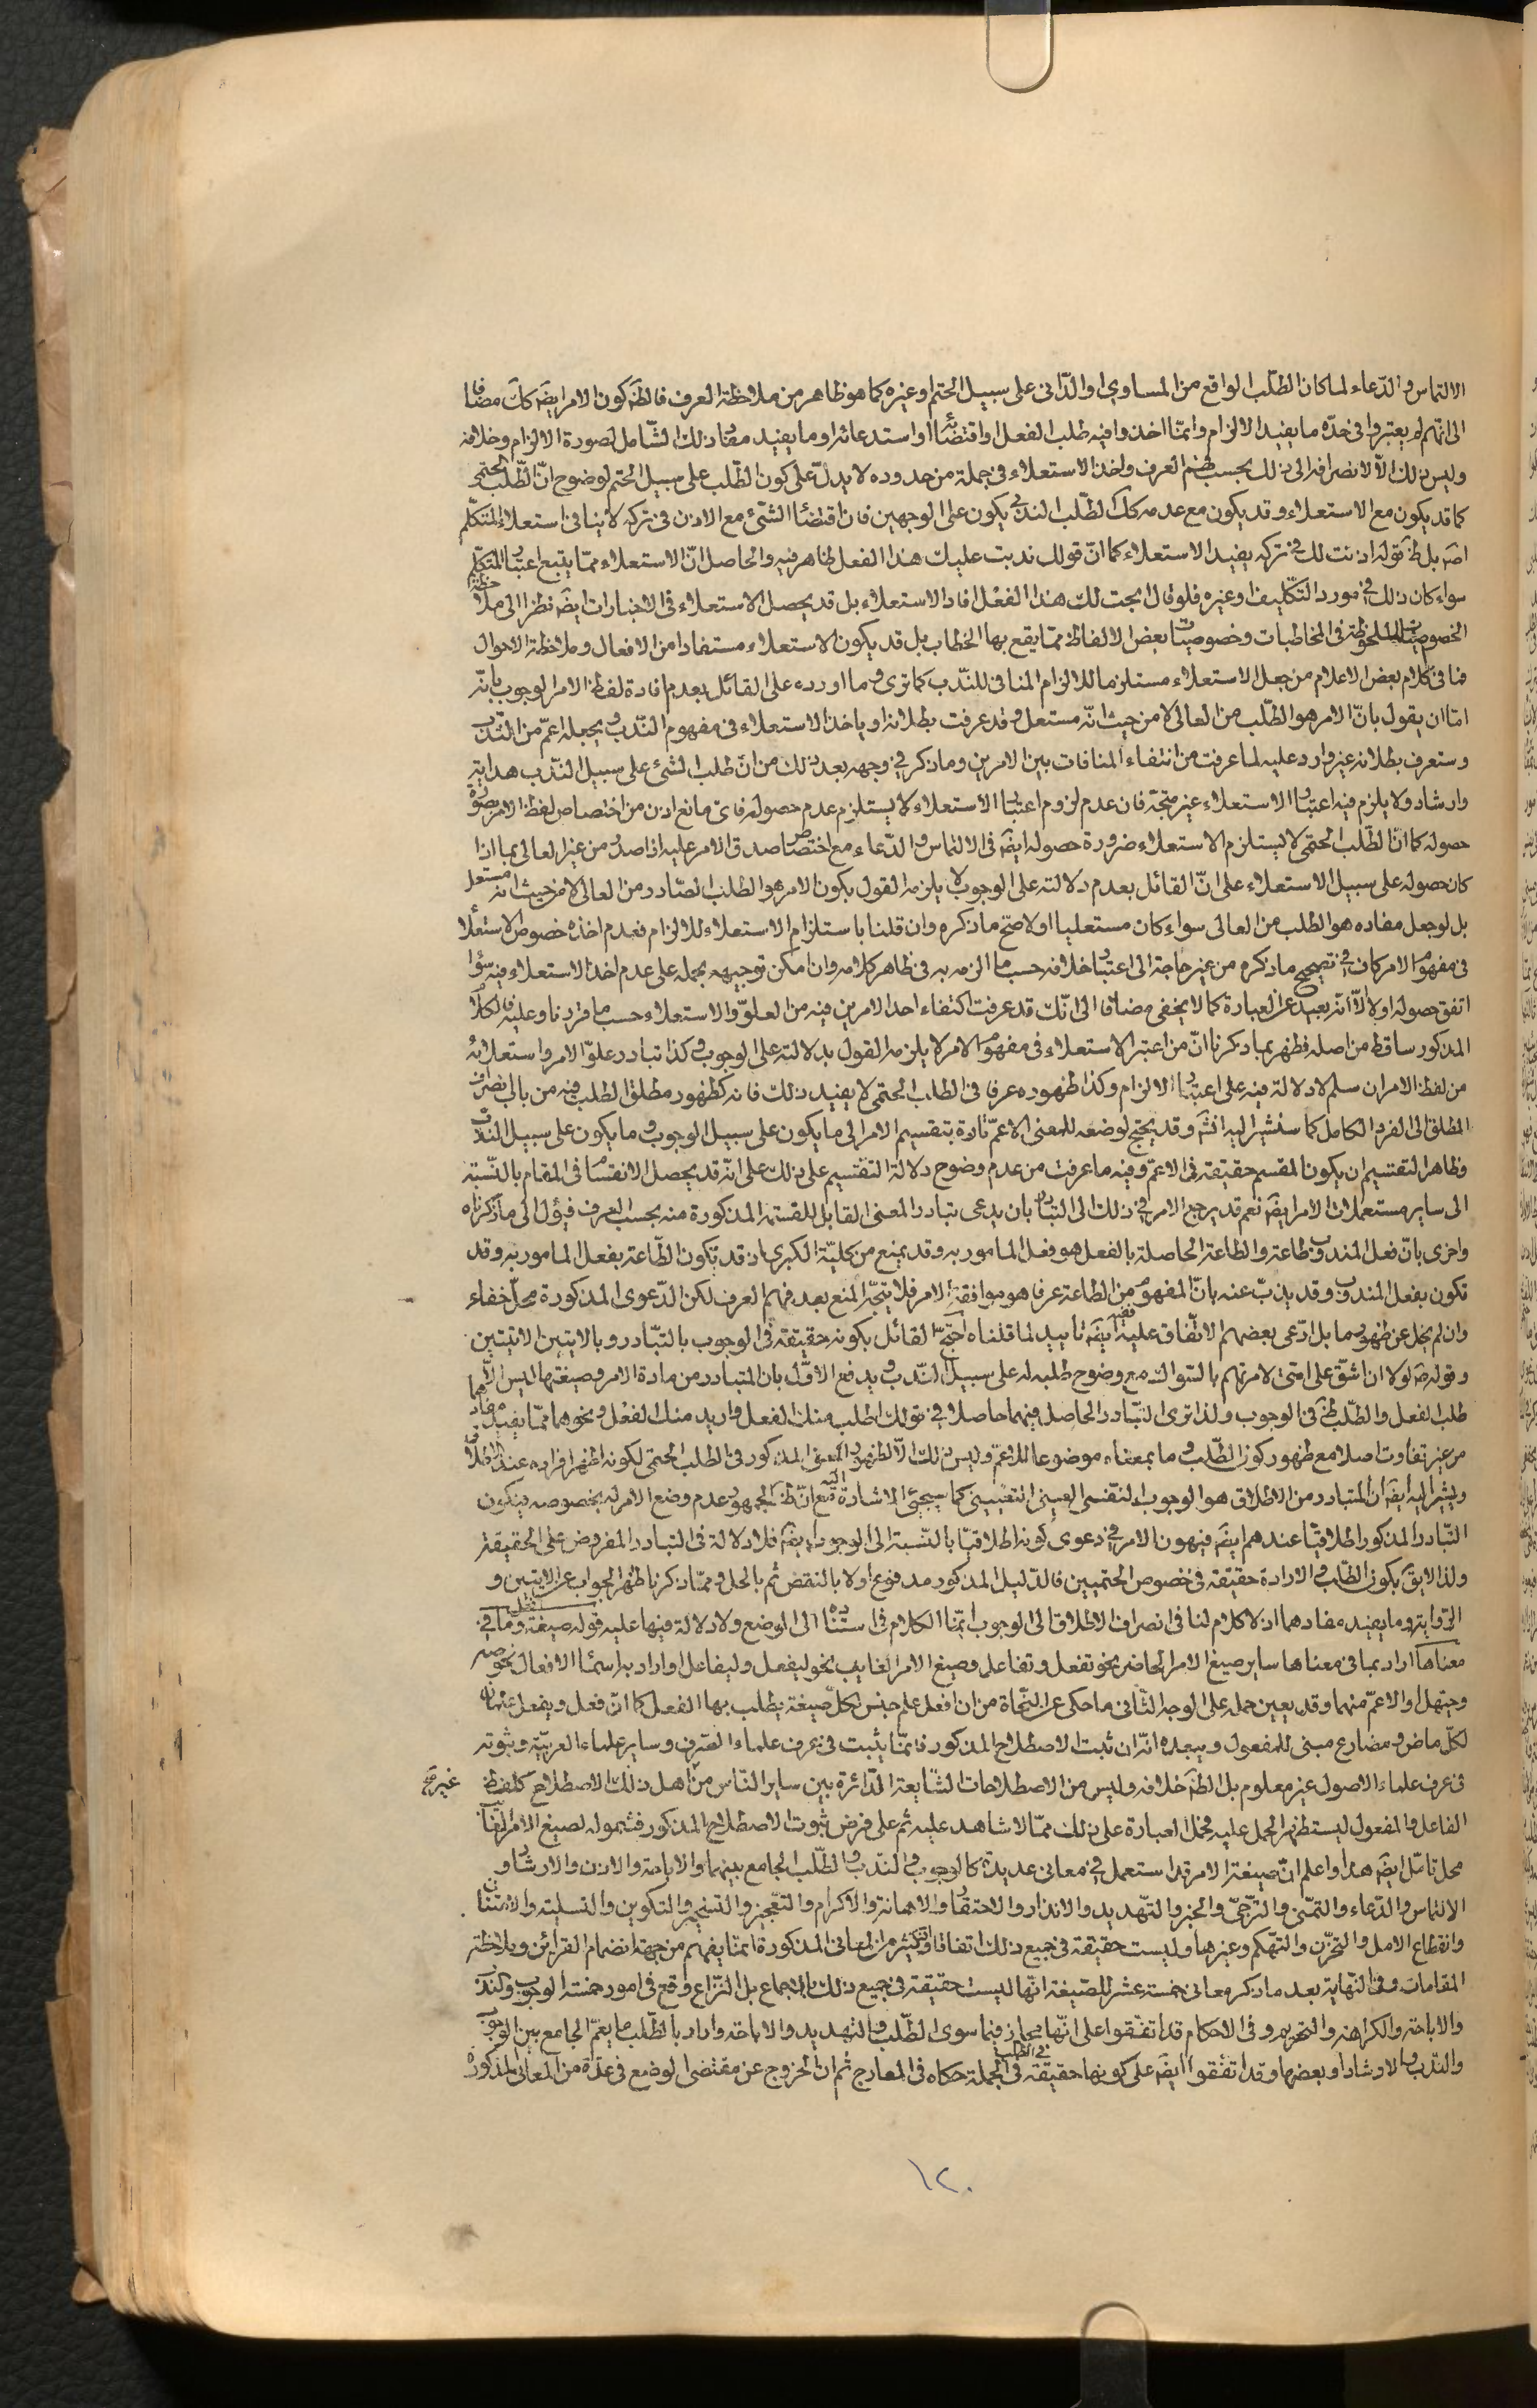 الالتماس والدّعاء لما كان الطّلب الواقع من المساوي او الدّاني على سبيل الحتم او غيره كما هو ظاهر من ملاحظة العرف فالظّ كون الامر ايضَ كك مضافا
الى انّهم لم يعتبروا في حدّه ما يفيد الالزام وانّما اخذوا فيه طلب الفعل او اقتضائه او استدعائه او ما يفيد مفاد ذلك الشّامل لصورة الالزام وخلافه
وليس ذلك الّا لانصرافه الى ذلك بحسب فهم العرف واخذ الاستعلاء في جملة من حدوده لا يدلّ على كون الطّلب على سبيل الحتم لوضوح انّ الطّلب الحتمي
كما قد يكون مع الاستعلاء وقد يكون مع عدمه كك الطّلب الندبي يكون على الوجهين فان اقتضاء الشّئ مع الاذن في تركه لا ينافي استعلاء المتكلّم
اصَ بل ظَ قوله اذنت لك في تركه يفيد الاستعلاء كما انّ قولك ندبت عليك هذا الفعل ظاهر فيه والحاصل انّ الاستعلاء ممّا يتبع اعتبار المتكلّم
سواء كان ذلك في مورد التّكليف او غيره فلو قال ابحت لك هذا الفعل افاد الاستعلاء بل قد يحصل الاستعلاء في الاخبارات ايضَ نظرا الى ملاحظة
الخصوصيّات الملحوظة في المخاطبات وخصوصيّات بعض الالفاظ ممّا يقع بها الخطاب بل قد يكون الاستعلاء مستفادا من الافعال وملاحظة الاحوال
فما في كلام بعض الاعلام من جعل الاستعلاء مستلزما للالزام المنافي للنّدب كما ترى وما اورده على القائل بعدم افادة لفظ الامر الوجوب بانّه
امّا ان يقول بانّ الامر هو الطّلب من العالي لا من حيث انّه مستعل وقد عرفت بطلانه او ياخذ الاستعلاء في مفهوم النّدب ويجعله اعمّ من النّدب
وستعرف بطلانه غير وارد عليه لما عرفت من انتفاء المنافات بين الامرين وما ذكر في وجهه بعد ذلك من انّ طلب الشئ على سبيل النّدب هداية
وارشاد ولا يلزم فيه اعتبار الاستعلاء غير متجّه فان عدم لزوم اعتبار الاستعلاء لا يستلزم عدم حصوله فاىّ مانع اذن من اختصاص لفظ الامر بصورة
حصوله كما انّ الطّلب الحتمي لا يستلزم الاستعلاء ضرورة حصوله ايضَ في الالتماس والدّعاء مع اختصاص صدق الامر عليه اذا صدر من غير العالي بما اذا
كان حصوله على سبيل الاستعلاء على انّ القائل بعدم دلالته على الوجوب لا يلزمه القول بكون الامر هو الطلب الصّادر من العالي لا من حيث انّه مستعل
بل لو جعل مفاده هو الطلب من العالي سواء كان مستعليا او لا صحّ ما ذكره وان قلنا باستلزام الاستعلاء للالزام فعدم اخذه خصوص الاستعلاء
في مفهوم الامر كاف في تصحيح ما ذكره من غير حاجة الى اعتبار خلافه حسب ما الزمه به في ظاهر كلامه وان امكن توجيهه بحمله على عدم اخذ الاستعلاء فيه سواء
اتفق حصوله او لا الّا انّه بعيد عن العبارة كما لا يخفى مضافا الى انّك قد عرفت اكتفاء احد الامرين فيه من العلوّ والاستعلاء حسب ما قررنا وعليه فالكلام
المذكور ساقط من اصله فظهر بما ذكرنا انّ من اعتبر الاستعلاء في مفهوم الامر لا يلزمه القول بدلالته على الوجوب وكذا تبادر علوّ الامر واستعلائه
من لفظ الامر ان سلم لا دلالة فيه على اعتبار الالزام وكذا ظهوره عرفا في الطلب الحتمي لا يفيد ذلك فانه كظهور مطلق الطلب فيه من باب انصراف
المطلق الى الفرد الكامل كما سنشير اليه انشَ وقد يحتج لوضعه للمعنى الاعمّ تارة بتقسيم الامر الى ما يكون على سبيل الوجوب وما يكون على سبيل الندب
وظاهر التقسيم ان يكون المقسم حقيقة في الاعمّ وفيه ما عرفت من عدم وضوح دلالة التقسيم على ذلك على انّه قد يحصل الانقسام في المقام بالنّسبة
الى ساير مستعملات الامر ايضَ نعم قد يرجع الامر في ذلك الى التبادر بان يدعى تبادر المعنى القابل للقسمة المذكورة منه بحسب العرف فيؤل الى ما ذكرناه
واخرى بانّ فعل المندوب طاعة والطاعة الحاصلة بالفعل هو فعل المامور به وقد يمنع من كليّة الكبرى اذ قد تكون الطّاعة بفعل المامور به وقد
تكون بفعل المندوب وقد يذبّ عنه بانّ المفهوم من الطاعة عرفا هو موافقة الامر فلا يتجّه المنع بعد فهم العرف لكن الدّعوى المذكورة محلّ خفاء
وان لم يخل عن ظهور ما بل ادّعى بعضهم الاتّفاق عليه ففيه ايضَ تاييد لما قلناه احتجّ القائل بكونه حقيقة في الوجوب بالتّبادر وبالايتين الاتيتين
وقوله صَ لولا ان اشقّ على امتى لامرتهم بالسّواك مع وضوح طلبه له على سبيل النّدب ويدفع الاوّل بان المتبادر من مادة الامر وصيغتها ليس الّا
طلب الفعل والطّلب ظَ في الوجوب ولذا ترى التّبادر الحاصل فيهما حاصلا في قولك اطلب منك الفعل واريد منك الفعل ونحوهما ممّا يفيد مفادهما
من غير تفاوت اصلا مع ظهور كون الطّلب وما بمعناه موضوعا للاعمّ وليس ذلك الّا لظهور المعنى المذكور في الطلب الحتمى لكونه اظهر افراده عند الاطلاق
ويشير اليه ايضَ انّ المتبادر من الاطلاق هو الوجوب النفسي العيني التعييني كما سيجئ الاشارة اليه مع انّ ظَ الجمهور عدم وضع الامر له بخصوصه فيكون
التّبادر المذكور اطلاقيّا عندهم ايضَ فيهون الامر في دعوى كونه اطلاقيّا بالنّسبة الى الوجوب ايضَ فلا دلالة في التبادر المفروض على الحقيقة
ولذا لا يقَ بكون الطّلب او الارادة حقيقة في خصوص الحتميين فالدّليل المذكور مدفوع اولا بالنقض ثم بالحل وممّا ذكرنا ظهر الجواب عن الايتين و
الرّواية وما يفيد مفادهما اذ لا كلام لنا في انصراف الاطلاق الى الوجوب انّما الكلام في استناده الى الوضع ولا دلالة فيها عليه قوله صيغة افعل وما في
معناها اراد بما في معناها ساير صيغ الامر الحاضر نحو تفعل وتفاعل وصيغ الامر الغايب نحو ليفعل وليفاعل او اراد به اسماء الافعال نحو صه
وحيّهل او الاعمّ منهما وقد يعين حمله على الوجه الثّاني ما حكى عن النّحاة من ان افعل علم جنس لكلّ صيغة يطلب بها الفعل كما انّ فعل ويفعل علمان
لكلّ ماض ومضارع مبنى للمفعول ويبعده انّه ان ثبت الاصطلاح المذكور فانّما يثبت في عرف علماء الصّرف وساير علماء العربيّة وثبوته
في عرف علماء الاصول غير معلوم بل الظَ خلافه وليس من الاصطلاحات الشّايعة الدّائرة بين ساير النّاس من غير اهل ذلك الاصطلاح كلفظ
الفاعل والمفعول ليستظهر الحمل عليه فحمل العبارة على ذلك ممّا لا شاهد عليه ثم على فرض ثبوت الاصطلاح المذكور فشموله لصيغ الامر الغائب
محل تامّل ايضَ هذا واعلم انّ صيغة الامر قد استعمل في معاني عديدة كالوجوب والنّدب والطّلب الجامع بينهما والاباحة والاذن والارشاد و
الالتماس والدّعاء والتمنّي والترّجّي والخبر والتّهديد والانذار والاحتقار والاهانة والاكرام والتعّجيز والتسخير والتكوين والتسلية والامتنان
وانقطاع الامل والتحزّن والتهّكم وغيرها وليست حقيقة في جميع ذلك اتفاقا وكثير من المعاني المذكورة انمّا يفهم من جهة انضمام القرائن وملاحظة
المقامات وفي النّهاية بعد ما ذكر معاني خمسة عشر للصّيغة انّها ليست حقيقة في جميع ذلك بالاجماع بل النزّاع وقع في امور خمسة الوجوب والندب
والاباحة والكراهة والتحريم وفي الاحكام قد اتفّقوا على انّها مجاز فيما سوى الطّلب والتهديد والاباحة واراد بالطّلب ما يعمّ الجامع بين الوجوب
والنّدب والارشاد او بعضها وقد اتّفقوا ايضَ على كونها حقيقة في الطلب في الجملة حكاه في المعارج ثم ان الخروج عن مقتضى الوضع في عدّة من المعاني المذكورة
١٢٠